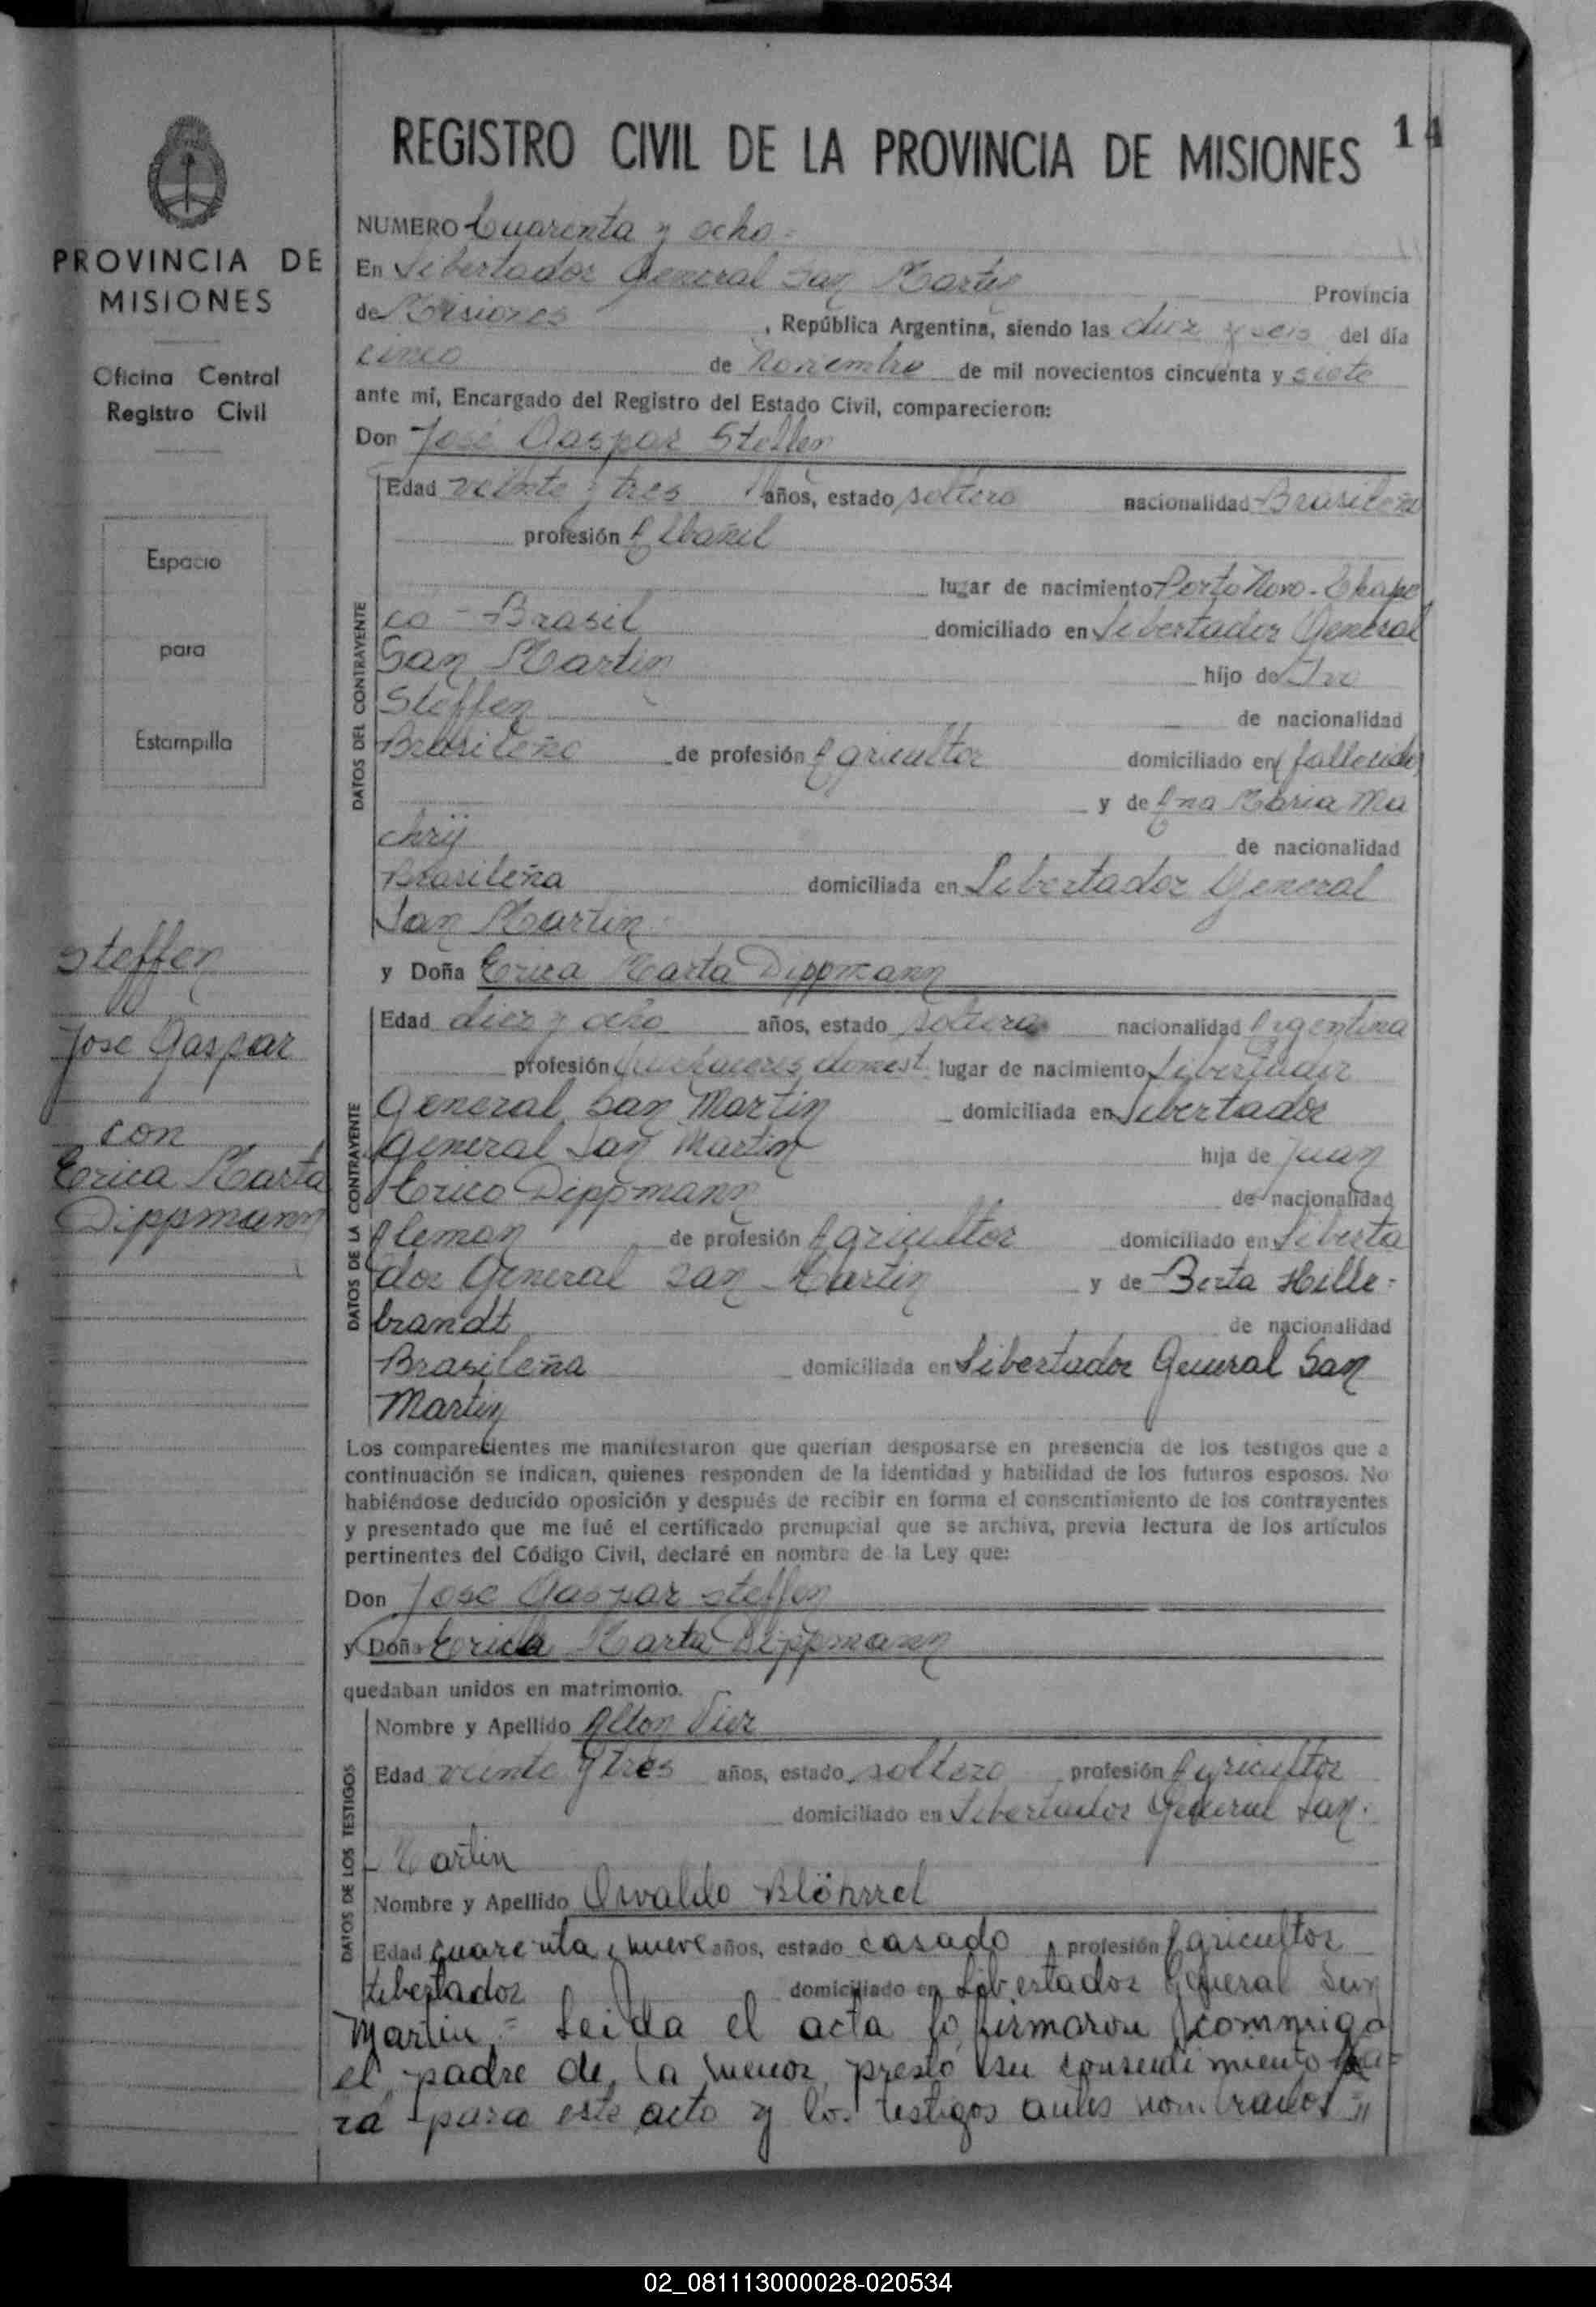 14
REGISTRO CIVIL DE LA PROVINCIA DE MISIONES
PROVINCIA DE
MISIONES
Oficina Central
Registro Civil
Espacio
para
Estampilla
Steffen
José Gaspar
con
Erica Marta
Dippmann
NUMERO Cuarenta y ocho =
En Libertador General San Martin Provincia
de Misiones, República Argentina, siendo las diez y seis del día
cinco de Noviembre de mil novecientos cincuenta y siete
ante mí, Encargado del Registro del Estado Civil, comparecieron:
Don José Gaspar Steffen
DATOS DEL CONTRAYENTE
Edad veinte y tres años, estado soltero nacionalidad Brasileña
profesión Albañil
lugar de nacimiento Porto Novo - Chape
có - Brasil domiciliado en Libertador General
San Martin hijo de Ivo
Steffen de nacionalidad
Brasileño de profesión Agricultor domiciliado en (fallecido)
y de Ana Maria Ma
chrij de nacionalidad
Brasileña domiciliada en Libertador General
San Martin
y Doña Erica Marta Dippmann
DATOS DE LA CONTRAYENTE
Edad diez y ocho años, estado soltera nacionalidad Argentina
profesión Quehaceres domest. lugar de nacimiento Libertador
General San Martin domiciliada en Libertador
General San Martin hija de Juan
Erico Dippmann de nacionalidad
Aleman de profesión Agricultor domiciliado en Liberta
dor General San Martin y de Berta Hille-
brandt de nacionalidad
Brasileña domiciliada en Libertador General San
Martin
Los comparecientes me manifestaron que querían desposarse en presencia de los testigos que a
continuación se indican, quienes responden de la identidad y habilidad de los futuros esposos. No
habiéndose deducido oposición y después de recibir en forma el consentimiento de los contrayentes
y presentado que me fué el certificado prenupcial que se archiva, previa lectura de los artículos
pertinentes del Código Civil, declaré en nombre de la Ley que:
Don José Gaspar Steffen
y Doña Erica Marta Dippmann
quedaban unidos en matrimonio.
DATOS DE LOS TESTIGOS
Nombre y Apellido Alton Vier
Edad veinte y tres años, estado soltero profesión Agricultor
domiciliado en Libertador General San
Martin
Nombre y Apellido Osvaldo
Edad cuarenta y nueve años, estado casado profesión Agricultor
Libertador domiciliado en Libertador General San
Martin = Leida el acta lo firmaron commigo
el padre de la menor, presto su consentimiento pa=
ra para este acto y los testigos antes nombrados ="
02_081113000028-020534